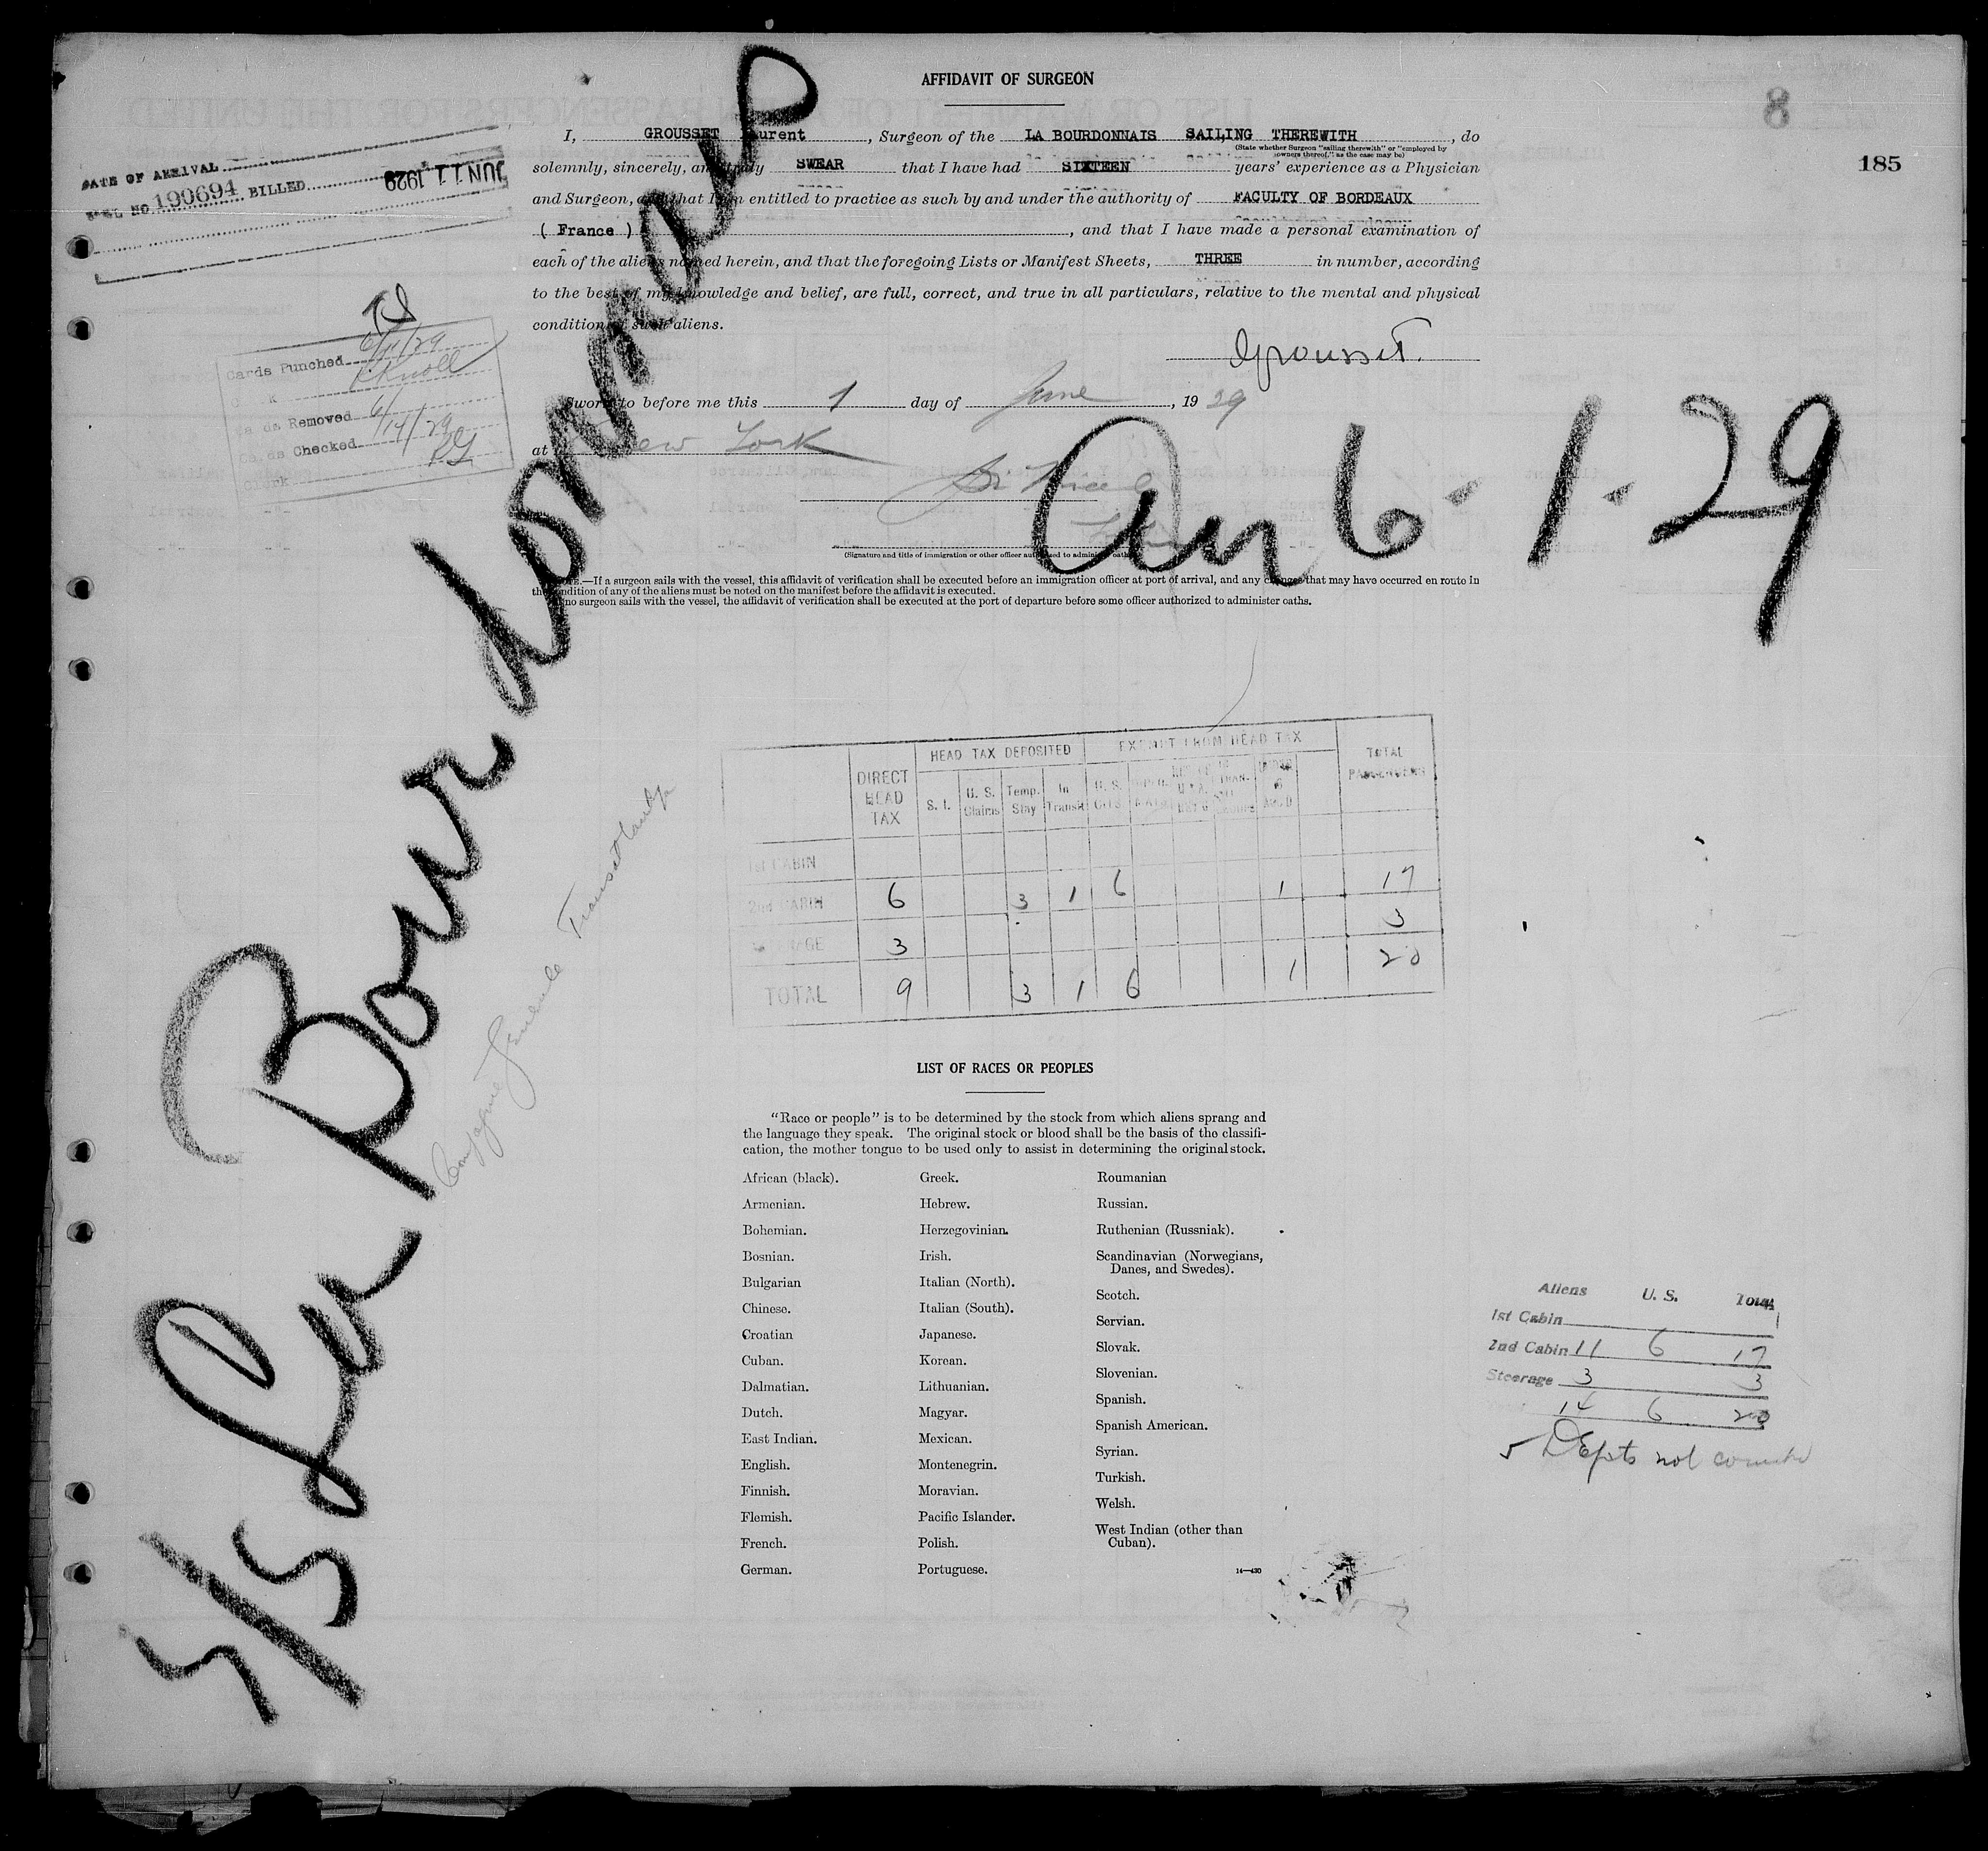 AFFIDAVIT OF SURGEON
8
185
I, GROUSSET Laurent, Surgeon of the LA BOURDONNAIS SAILING THEREWITH, do
(State whether Surgeon "sailing therewith" or "employed by
owners thereof," as the case may be)
solemnly, sincerely, and truly SWEAR that I have had SIXTEEN years' experience as a Physician
and Surgeon, and that I am entitled to practice as such by and under the authority of FACULTY OF BORDEAUX
( France ), and that I have made a personal examination of
each of the aliens named herein, and that the foregoing Lists or Manifest Sheets, THREE in number, according
to the best of my knowledge and belief, are full, correct, and true in all particulars, relative to the mental and physical
condition of such aliens.
Grousset.
Sworn to before me this 1 day of June, 1929
at New York
(Signature and title of immigration or other officer authorized to administer oaths.)
NOTE.—If a surgeon sails with the vessel, this affidavit of verification shall be executed before an immigration officer at port of arrival, and any changes that may have occurred en route in
the condition of any of the aliens must be noted on the manifest before the affidavit is executed.
If no surgeon sails with the vessel, the affidavit of verification shall be executed at the port of departure before some officer authorized to administer oaths.
DATE OF ARRIVAL
NO. 190694 BILLED JUN 11 1929
Cards Punched 6/11/29
Knoll
Cards Removed 6/
Cards Checked 6/14/29
Clerk
S/S La Bourdonnais
Arr 6-1-29
Compagnie Generale Transatlantique
DIRECT HEAD TAX
HEAD TAX DEPOSITED
EXEMPT FROM HEAD TAX
TOTAL PASSENGERS
S. I. U. S. Claims Temp. Stay In Transit U. S. CITS.
1st CABIN
2nd CABIN 6 3 1 6 1 17
STEERAGE 3 3
TOTAL 9 3 1 6 1 20
LIST OF RACES OR PEOPLES
"Race or people" is to be determined by the stock from which aliens sprang and
the language they speak. The original stock or blood shall be the basis of the classifi-
cation, the mother tongue to be used only to assist in determining the original stock.
African (black).
Armenian.
Bohemian.
Bosnian.
Bulgarian
Chinese.
Croatian
Cuban.
Dalmatian.
Dutch.
East Indian.
English.
Finnish.
Flemish.
French.
German.
Greek.
Hebrew.
Herzegovinian.
Irish.
Italian (North).
Italian (South).
Japanese.
Korean.
Lithuanian.
Magyar.
Mexican.
Montenegrin.
Moravian.
Pacific Islander.
Polish.
Portuguese.
Roumanian
Russian.
Ruthenian (Russniak).
Scandinavian (Norwegians,
Danes, and Swedes).
Scotch.
Servian.
Slovak.
Slovenian.
Spanish.
Spanish American.
Syrian.
Turkish.
Welsh.
West Indian (other than
Cuban).
14—430
Aliens U. S. Total
1st Cabin
2nd Cabin 11 6 17
Steerage 3 3
14 6 20
5 Depts not